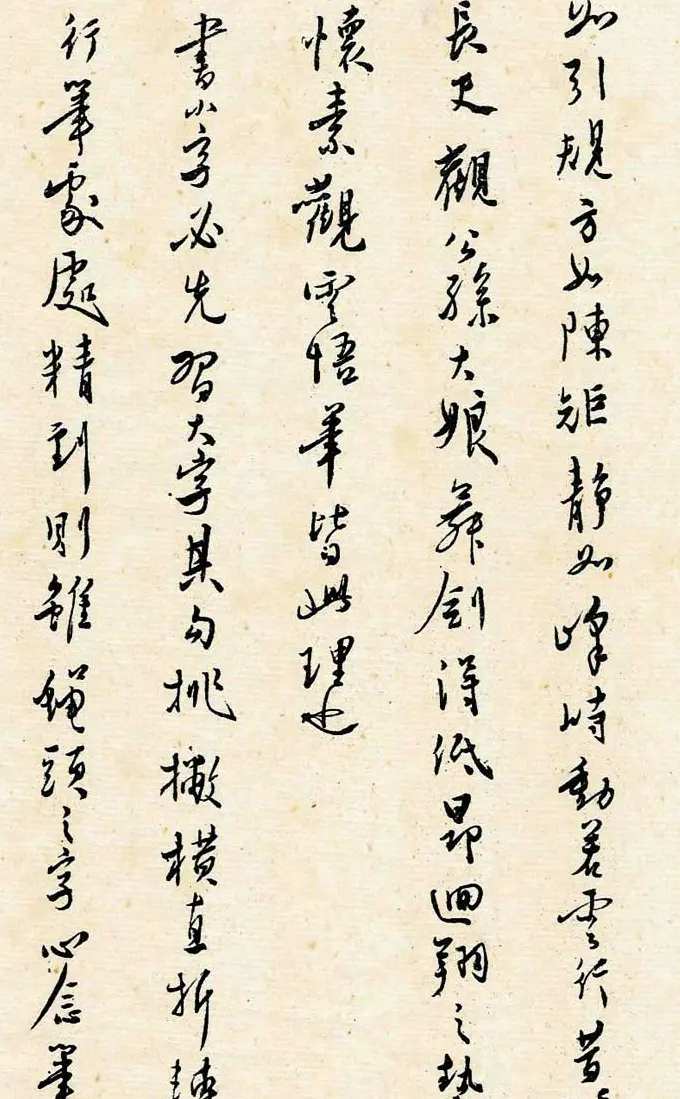 如引規方如陳矩靜如峰峙動若雲行昔
長史觀公孫大娘舞劍得低昂迴翔之勢
懷素觀雲悟筆皆此理也
書小字必先習大字其勾挑撇橫直折
行筆處處精到則雖蠅頭之字心念筆